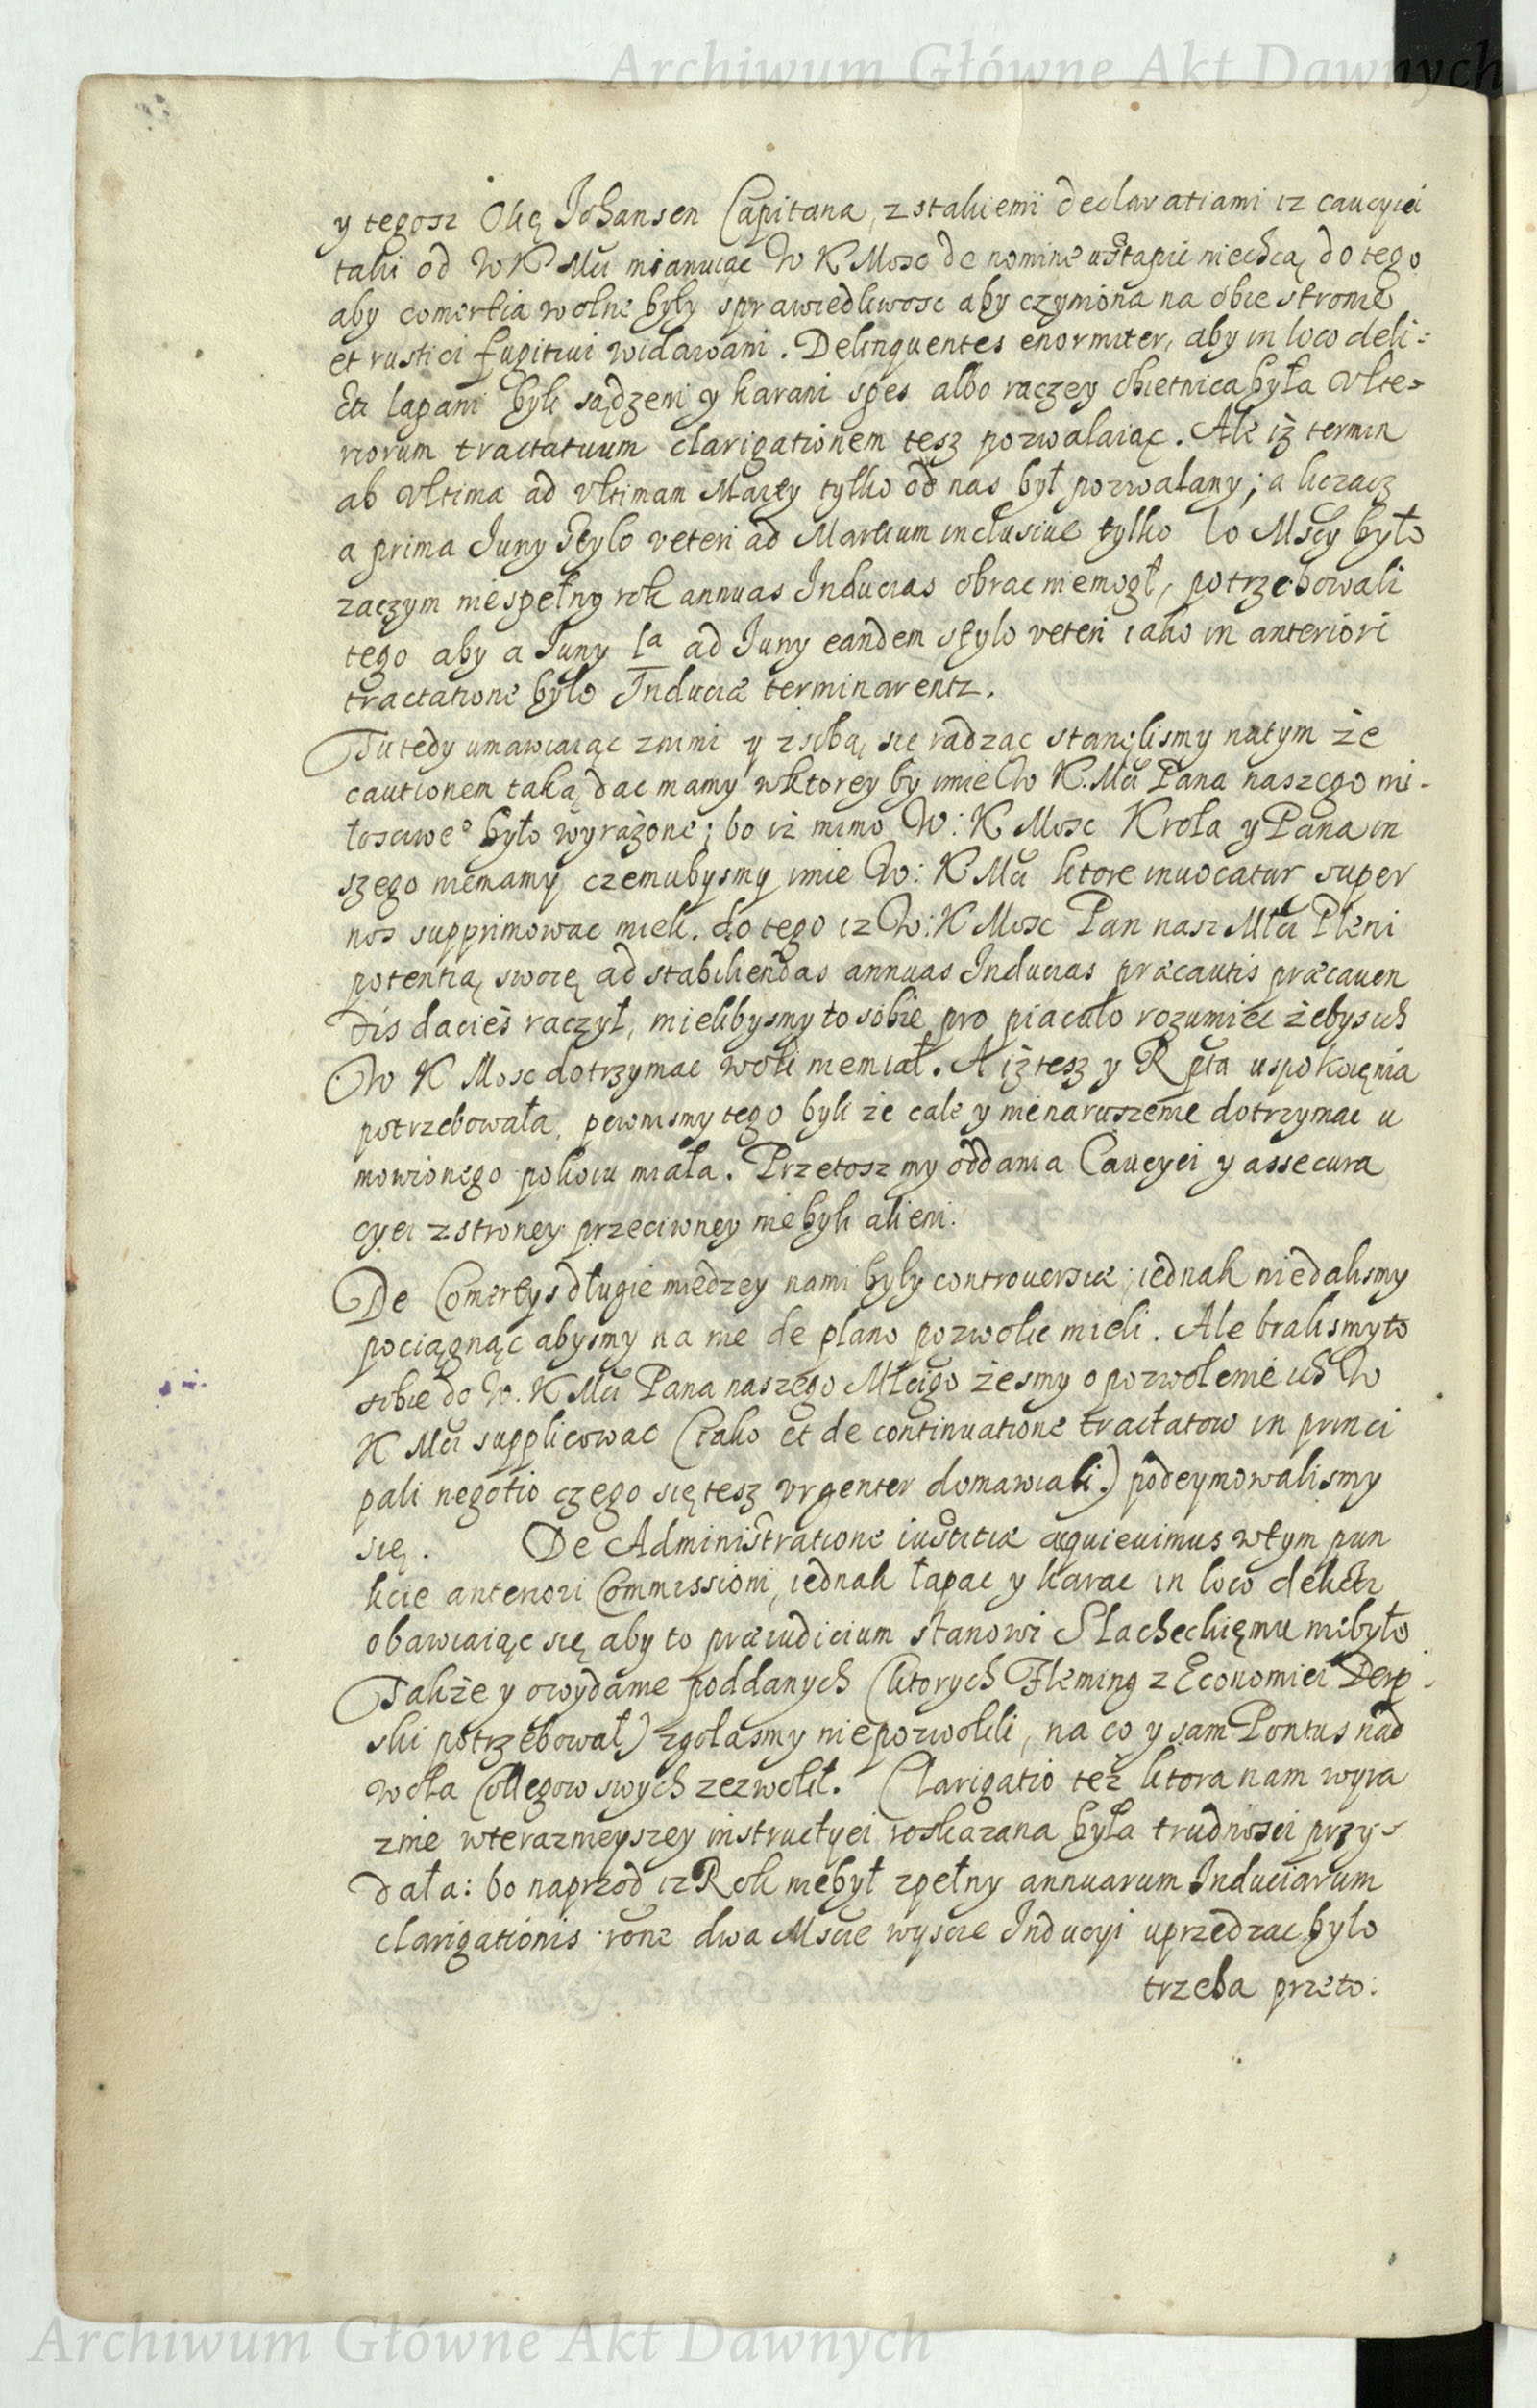 Archiwum Główne Akt Dawnych
y tegosz Olię Johansen Capitana, z stakiemi declaratiami iz caucyiei
taki od W K Mci mianuiąc W K Mosc de nomine ustapic niechcą, do tego
aby comertia wolne były sprawiedliwosc aby czyniona na obie stronie
et rustici fugitiui widawani. Delinquentes enormiter, aby in loco deli=
cti lapani byli sądzeni y karani spes albo raczey obietnica była vlte=
riorum tractatuum clarigationem tesz pozwalaiąc. Ale iż termin
ab vltima ad vltimam Marty tylko od nas był pozwalany; a liczacz
a prima Juny stylo veteri ad Martium inclusiue tylko 10 Mscy było
zaczym niespełny rok annuas Inducias obrac niemogł, potrzebowali
tego aby a Juny 1a ad Juny eandem stylo veteri iako in anteriori
tractatione było Induciæ terminarentz.
Tu tedy umawiaiąc znimi y zsobą się radząc stanęlismy natym że
cautionem taką dac mamy wktorey by imie W K. Mci Pana naszego mi-
łosciwe° było wyrażone; bo iż mimo W: K Mosc Krola y Pana in
szego niemamy czemubysmy imie W: K Mci ktore inuocatur super
nos supprimowac mieli. do tego iz W: K Mosc Pan nasz Młci Pleni
potentią swoię ad stabiliendas annuas Inducias præcautis præcauen
dis dacies raczył, mielibysmy to sobie pro piaculo rozumiec żebys ich
W K Mosc dotrzymac woli niemiał. A iż tesz y R pta uspokoięnia
potrzebowała, pewnismy tego byli że cale y nienaruszenie dotrzymac u
mowionego pokoiu miała. Przetosz my oddania Caucyei y assecura
cyei z stroney przeciwney niebyli alieni.
De Comertys długie miedzey nami były controuersiæ; iednak niedalismy
pociągnąc abysmy na nie de plano pozwolic mieli. Ale bralismyto
sobie do W. K Mci Pana naszego Młcigo żesmy o pozwolenie ich W
K Mci supplicowac (iako et de continuatione tractatow in princi
pali negotio czego się tesz vrgenter domawiali.) podeymowalismy
się. De Administratione iustitiæ acquieuimus wtym pun
kcie anteriori Commissioni, iednak łapac y karac in loco delicti
obawiaiąc się aby to præiudicium stanowi Slacheckięmu niebyło
Także y owydanie poddanych (ktorych Fleming z Economiei Derp
ski potrzebował) zgołasmy niepozwolili, na co y sam Pontus nad
wola Collegow swych zezwolił. Clarigatio też ktora nam wyra
znie wterazneyszey instructyei roskazana była trudnosci przy=
dała: bo naprzod iz Rok niebył zpełny annuarum Induciarum
clarigationis rone dwa Mscie wyscie Inducyi uprzedzac było
trzeba przeto:
Archiwum Główne Akt Dawnych